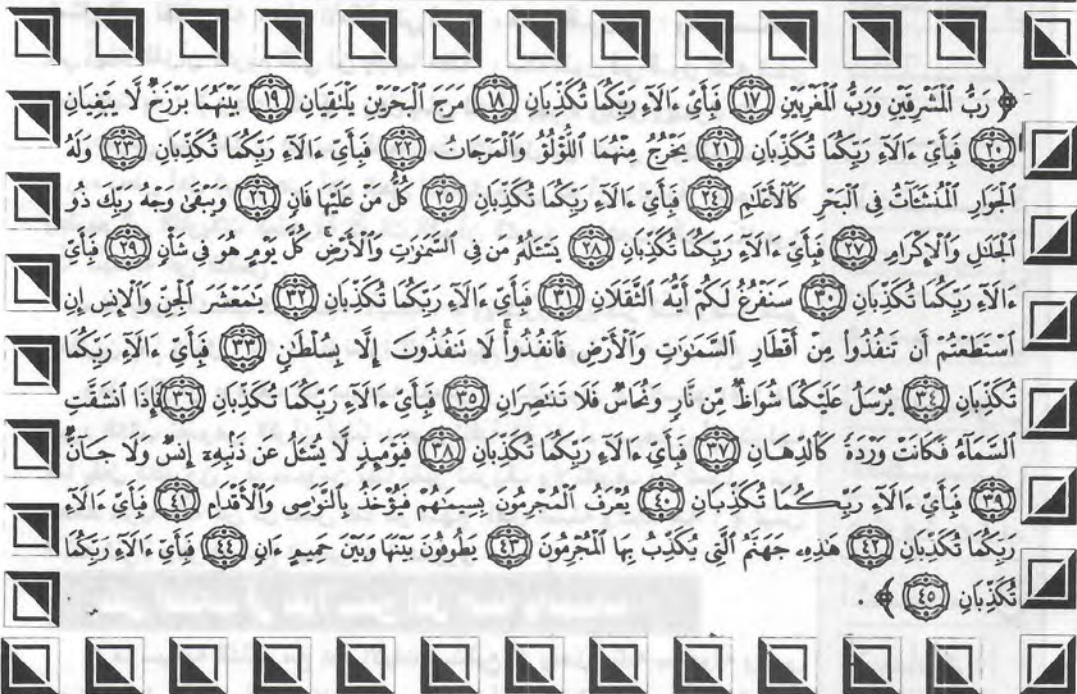 ﴿ رَبُّ ٱلْمَشْرِقَيْنِ وَرَبُّ ٱلْمَغْرِبَيْنِ ﴿١٧﴾ فَبِأَيِّ ءَالَآءِ رَبِّكُمَا تُكَذِّبَانِ ﴿١٨﴾ مَرَجَ ٱلْبَحْرَيْنِ يَلْتَقِيَانِ ﴿١٩﴾ بَيْنَهُمَا بَرْزَخٌ لَّا يَبْغِيَانِ
﴿٢٠﴾ فَبِأَيِّ ءَالَآءِ رَبِّكُمَا تُكَذِّبَانِ ﴿٢١﴾ يَخْرُجُ مِنْهُمَا ٱللُّؤْلُؤُ وَٱلْمَرْجَانُ ﴿٢٢﴾ فَبِأَيِّ ءَالَآءِ رَبِّكُمَا تُكَذِّبَانِ ﴿٢٣﴾ وَلَهُ
ٱلْجَوَارِ ٱلْمُنشَـَٔاتُ فِى ٱلْبَحْرِ كَٱلْأَعْلَـٰمِ ﴿٢٤﴾ فَبِأَيِّ ءَالَآءِ رَبِّكُمَا تُكَذِّبَانِ ﴿٢٥﴾ كُلُّ مَنْ عَلَيْهَا فَانٍ ﴿٢٦﴾ وَيَبْقَىٰ وَجْهُ رَبِّكَ ذُو
ٱلْجَلَـٰلِ وَٱلْإِكْرَامِ ﴿٢٧﴾ فَبِأَيِّ ءَالَآءِ رَبِّكُمَا تُكَذِّبَانِ ﴿٢٨﴾ يَسْـَٔلُهُۥ مَن فِى ٱلسَّمَـٰوَٰتِ وَٱلْأَرْضِ ۚ كُلَّ يَوْمٍ هُوَ فِى شَأْنٍ ﴿٢٩﴾ فَبِأَيِّ
ءَالَآءِ رَبِّكُمَا تُكَذِّبَانِ ﴿٣٠﴾ سَنَفْرُغُ لَكُمْ أَيُّهَ ٱلثَّقَلَانِ ﴿٣١﴾ فَبِأَيِّ ءَالَآءِ رَبِّكُمَا تُكَذِّبَانِ ﴿٣٢﴾ يَـٰمَعْشَرَ ٱلْجِنِّ وَٱلْإِنسِ إِنِ
ٱسْتَطَعْتُمْ أَن تَنفُذُوا۟ مِنْ أَقْطَارِ ٱلسَّمَـٰوَٰتِ وَٱلْأَرْضِ فَٱنفُذُوا۟ ۚ لَا تَنفُذُونَ إِلَّا بِسُلْطَـٰنٍ ﴿٣٣﴾ فَبِأَيِّ ءَالَآءِ رَبِّكُمَا
تُكَذِّبَانِ ﴿٣٤﴾ يُرْسَلُ عَلَيْكُمَا شُوَاظٌ مِّن نَّارٍ وَنُحَاسٌ فَلَا تَنتَصِرَانِ ﴿٣٥﴾ فَبِأَيِّ ءَالَآءِ رَبِّكُمَا تُكَذِّبَانِ ﴿٣٦﴾ فَإِذَا ٱنشَقَّتِ
ٱلسَّمَآءُ فَكَانَتْ وَرْدَةً كَٱلدِّهَانِ ﴿٣٧﴾ فَبِأَيِّ ءَالَآءِ رَبِّكُمَا تُكَذِّبَانِ ﴿٣٨﴾ فَيَوْمَئِذٍ لَّا يُسْـَٔلُ عَن ذَنۢبِهِۦٓ إِنسٌ وَلَا جَآنٌّ
﴿٣٩﴾ فَبِأَيِّ ءَالَآءِ رَبِّكُمَا تُكَذِّبَانِ ﴿٤٠﴾ يُعْرَفُ ٱلْمُجْرِمُونَ بِسِيمَـٰهُمْ فَيُؤْخَذُ بِٱلنَّوَٰصِى وَٱلْأَقْدَامِ ﴿٤١﴾ فَبِأَيِّ ءَالَآءِ
رَبِّكُمَا تُكَذِّبَانِ ﴿٤٢﴾ هَـٰذِهِۦ جَهَنَّمُ ٱلَّتِى يُكَذِّبُ بِهَا ٱلْمُجْرِمُونَ ﴿٤٣﴾ يَطُوفُونَ بَيْنَهَا وَبَيْنَ حَمِيمٍ ءَانٍ ﴿٤٤﴾ فَبِأَيِّ ءَالَآءِ رَبِّكُمَا
تُكَذِّبَانِ ﴿٤٥﴾ ﴾ .